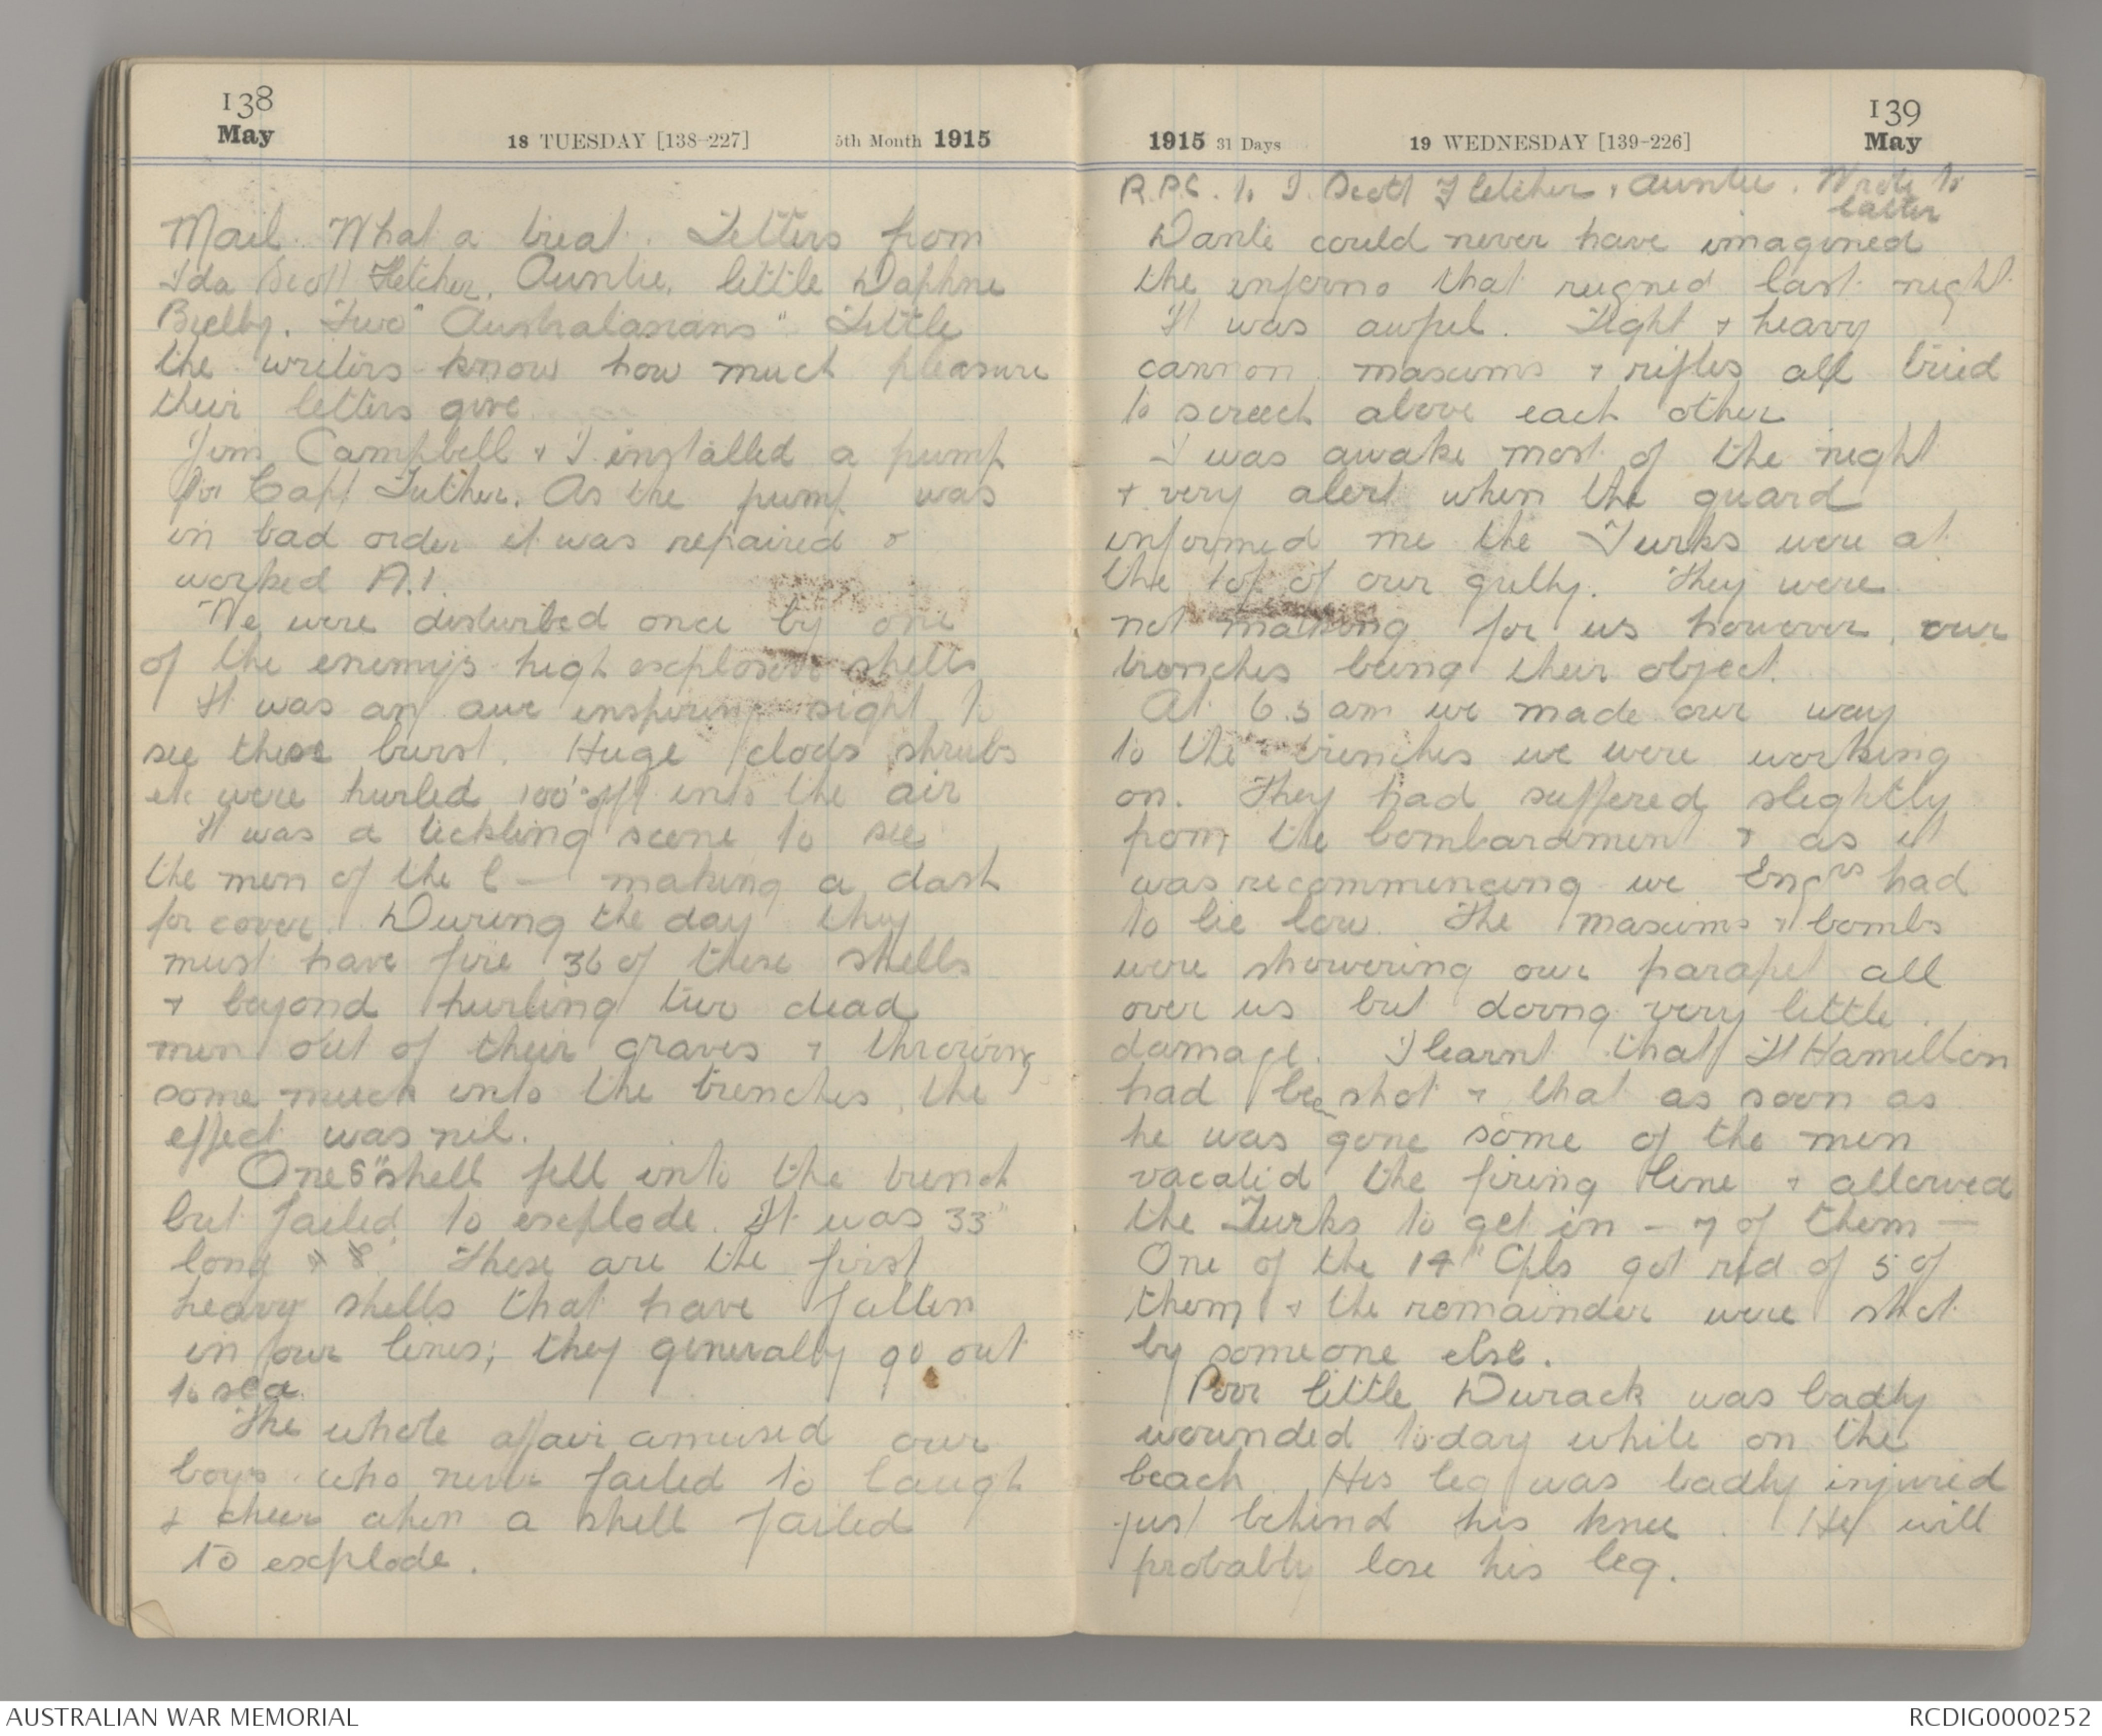 138
May
18 TUESDAY [138-227]
5th Month 1915
Mail. What a treat. Letters from
Ida Scott Fletcher, Auntie, little Daphne
Bielby. Two "Australasians" Little
the writers know how much pleasure
their letters give
Jim Campbell & I installed a pump
for Capt Luther. As the pump was
in bad order it was repaired &
worked A.1.
We were disturbed once by one
of the enemy's high explosive shells
It was an awe inspiring sight to
see these burst. Huge clods shrubs
etc were hurled 100' off into the air
It was a tickling scene to see
the men of the C— making a dash
for cover. During the day they
must have fire 36 of these shells
& beyond hurling two dead
men out of their graves & throwing
some muck into the trenches, the
effect was nil.
One 8" shell fell into the trench
but failed to explode. It was 33"
long x 8". These are the first
heavy shells that have fallen
in our lines; they generally go out
to sea.
The whole affair amused our
boys who never failed to laugh
& cheer when a shell failed
to explode.
1915 31 Days
19 WEDNESDAY [139-226]
139
May
R.P.C. to I. Scott Fletcher, Auntie. Wrote to
latter
Dante could never have imagined
the inferno that reigned last night
It was awful. Light & heavy
cannon, maxims & rifles all tried
to screech above each other
I was awake most of the night
& very alert when the guard
informed me the Turks were at
the top of our gully. They were
not making for us however, our
trenches being their object.
At 6.5 am we made our way
to the trenches we were working
on. They had suffered slightly
from the bombardment & as it
was recommencing we Engrs had
to lie low. The maxims & bombs
were showering our parapet all
over us but doing very little
damage. I learnt that Lt Hamilton
had been shot & that as soon as
he was gone some of the men
vacated the firing line & allowed
the Turks to get in - 7 of them -
One of the 14" Cpls got rid of 5 of
them & the remainder were shot
by someone else.
Poor little Durack was badly
wounded today while on the
beach. His leg was badly injured
just behind his knee. He will
probably lose his leg.
AUSTRALIAN WAR MEMORIAL
RCDIG0000252